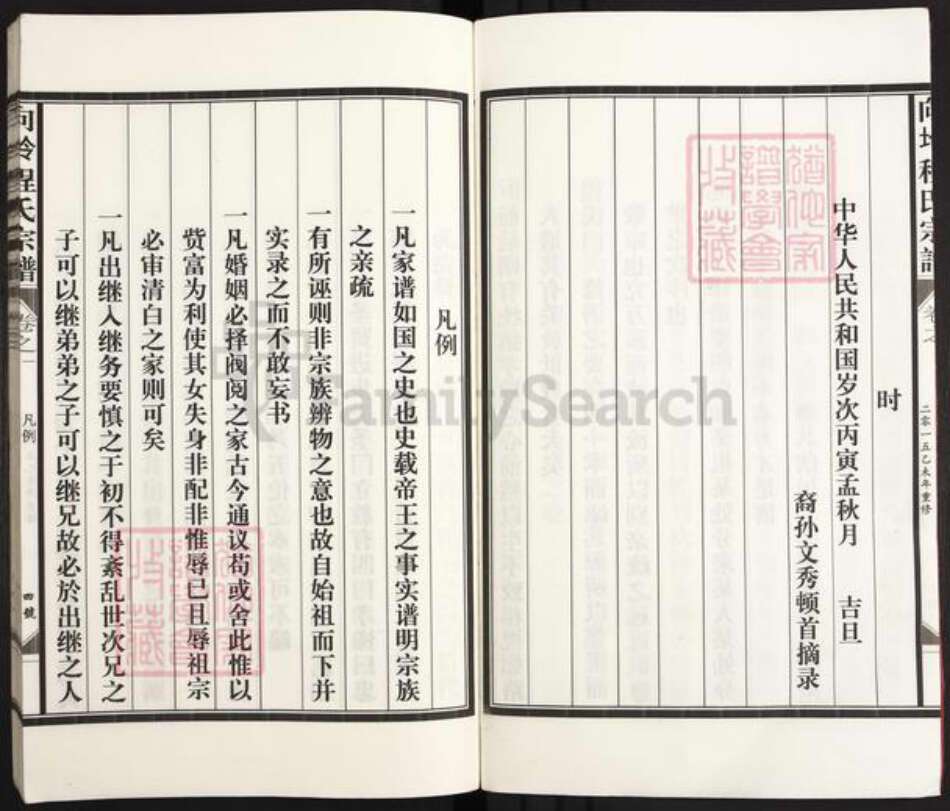 时
中华人民共和国岁次丙寅孟秋月 吉旦
裔孙文秀顿首摘录
程氏宗谱
卷之
二零一五乙未年重修
凡例
一凡家谱如国之史也史载帝王之事实谱明宗族
之亲疏
一有所诬则非宗族辨物之意也故自始祖而下并
实录之而不敢妄书
一凡婚姻必择阀阅之家古今通议苟或舍此惟以
赀富为利使其女失身非配非惟辱已且辱祖宗
必审清白之家则可矣
一凡出继入继务要慎之于初不得紊乱世次兄之
子可以继弟弟之子可以继兄故必於出继之人
程氏宗谱
卷之一
凡例
四號
FamilySearch